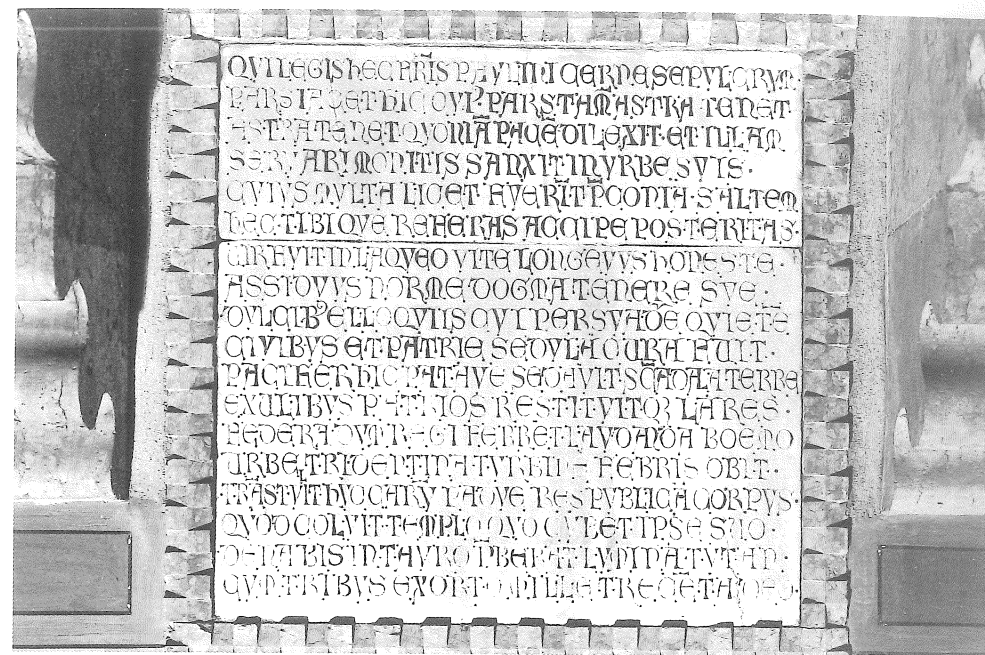 QVI LEGIS hEC PRIS PAVLINI CERNE SEPVLCRVM
PARS IACET HIC QVIP PARS TAM ASTRA TENET
ASTRA TENET QVONIA PACE DILEXIT ET ILLAM
SERVARI MONITIS SANXIT IN VRBE SVIS
CVIVS MVLTA LICET FVERIT PCONIA SALTEM
hEC TIBI QVE REFERAS ACCIPE POSTERITAS
IN LAQVEO VITE LONGEVVS hONESTE
ASSIDVVS NORME DOGMA TENERE SVE
DVLCIB ELLOQVIIS QVI PERSVADE QVIETE
CIVIBVS ET PATRIE SEDVLA CURA FUIT
PACIFER HIC PATAVE SEDAVIT SCADALA TERRE
EXULIBVS PATRIOS RESTITVITQ LARES
FEDERA DVM REGI FERRET LAVDANDA BOEMO
URBE TRIDENTINA FEBRIS OBIT
HVC CARV PADVE RESPVBLICA CORPVS
QVOD COLVIT TEMPLO QVO CVLET IPSE SVO
IN TAVRO LVMINA
CVM TRIBVS EXORTO MILLE TRECETA DEO